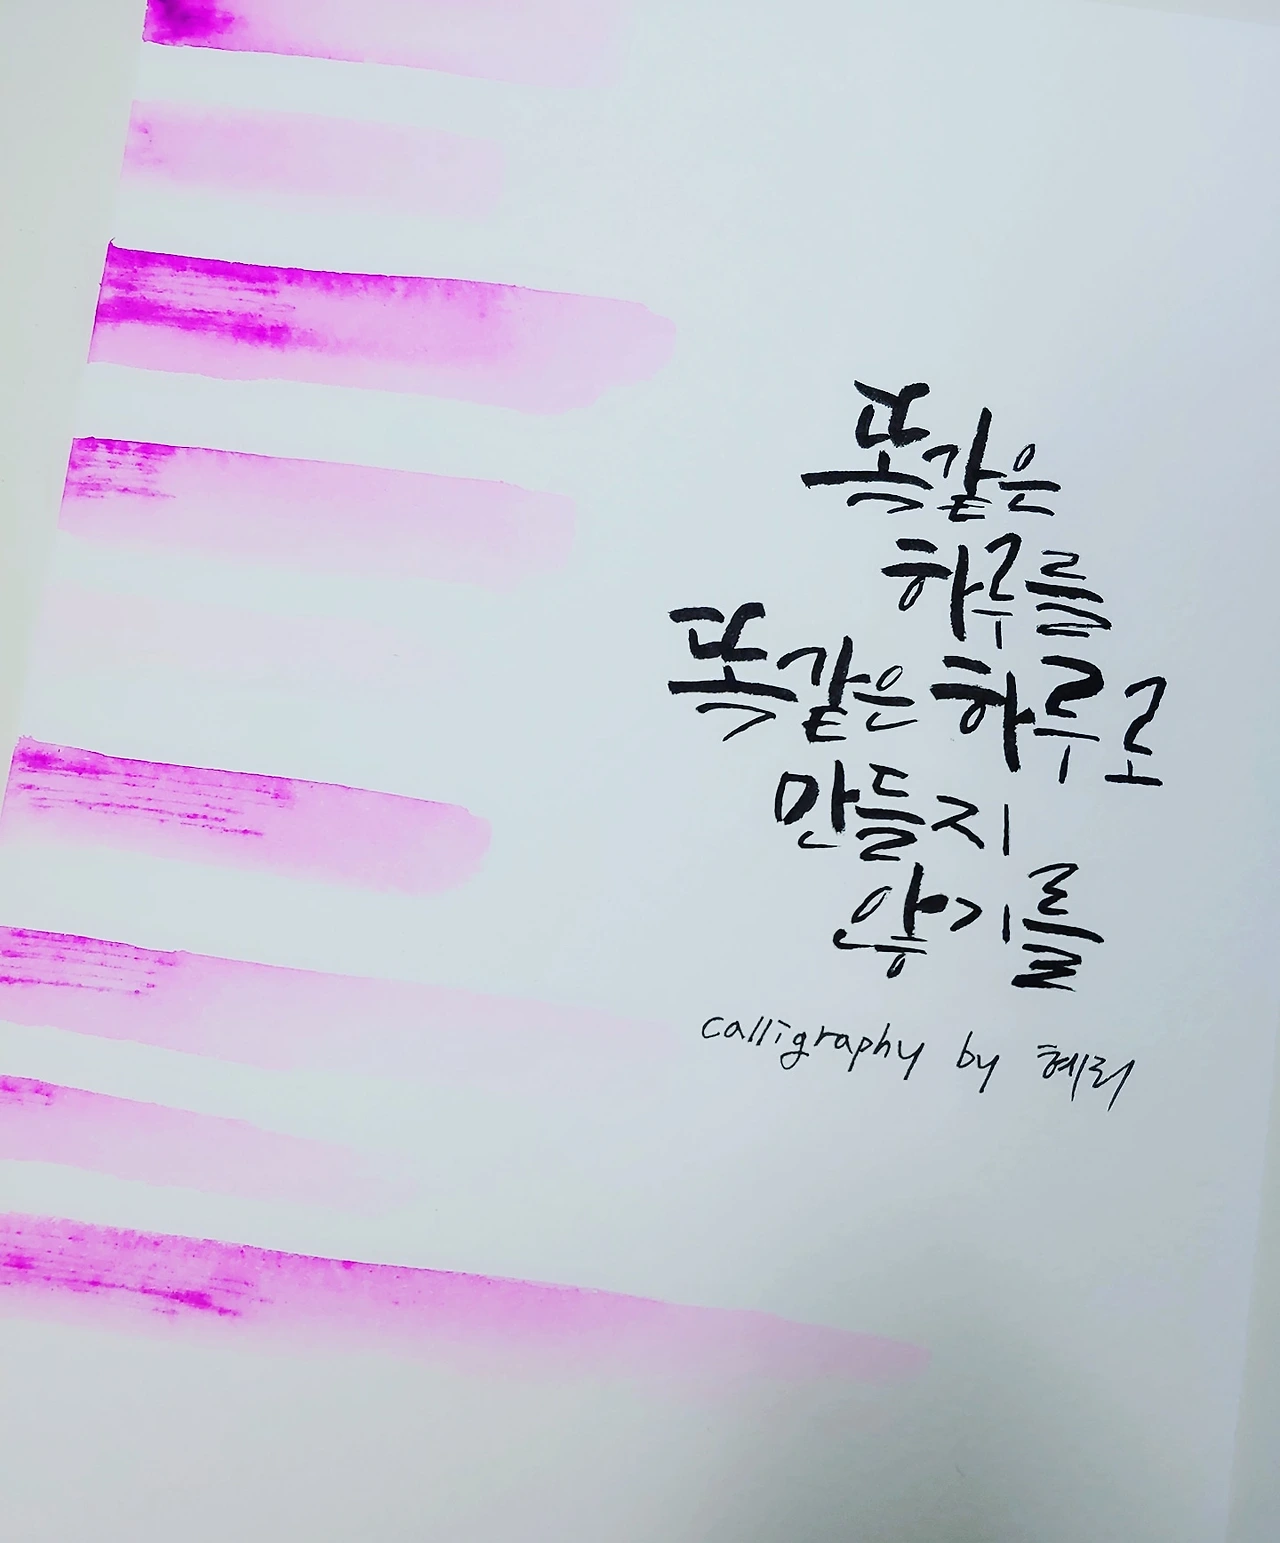 똑같은
하루를
똑같은 하루로
만들지
않기를
calligraphy by 혜리